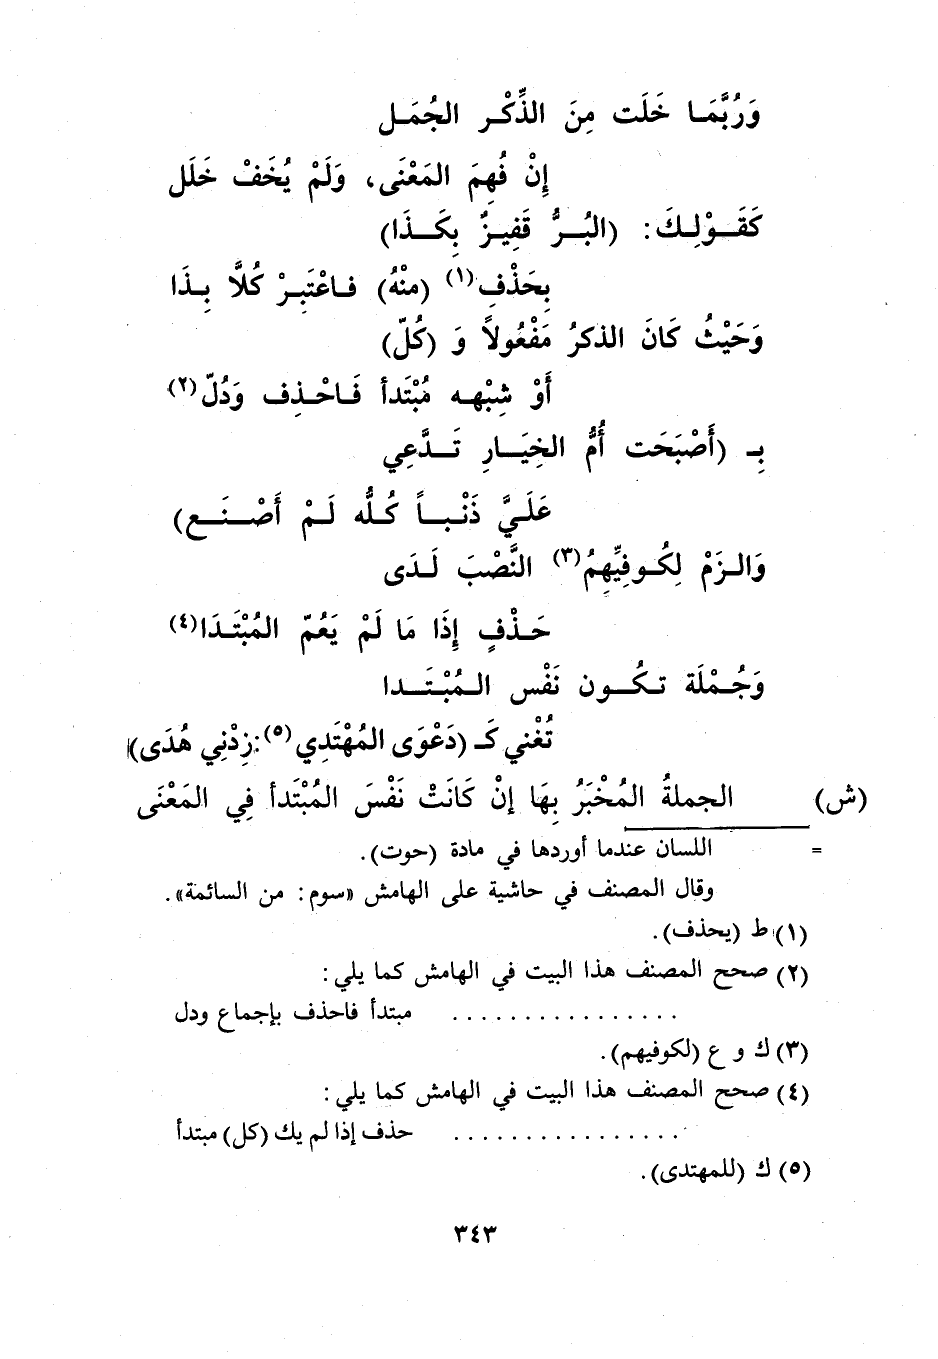 وَرُبَّمَا خَلَت مِنَ الذِّكْر الجُمَل
إِنْ فُهِمَ المَعْنَى، وَلَمْ يُخَفْ خَلَل
كَقَوْلِكَ: (البُرُّ قَفِيزٌ بِكَذَا)
بِحَذْفِ(١) (مِنْهُ) فاعْتَبِرْ كُلاًّ بِذَا
وَحَيْثُ كَانَ الذكرُ مَفْعُولاً وَ (كُلّ)
أَوْ شِبْهه مُبْتَدأ فَاحْذِف وَدُلّ(٢)
بِـ (أَصْبَحَت أُمُّ الخِيَارِ تَدَّعِي
عَلَيَّ ذَنْباً كُلُّه لَمْ أَصْنَع)
وَالزَمْ لِكُوفِيِّهِمُ(٣) النَّصْبَ لَدَى
حَذْفٍ إِذَا مَا لَمْ يَعُمّ المُبْتَدَا(٤)
وَجُمْلَة تكُون نَفْس المُبْتَدا
تُغْنِي كَـ (دَعْوَى المُهْتَدِي(٥):زِدْنِي هُدَى)
(ش) الجملةُ المُخْبَرُ بِهَا إِنْ كَانَتْ نَفْسَ المُبْتَدأ فِي المَعْنَى
= اللسان عندما أوردها في مادة (حوت).
وقال المصنف في حاشية على الهامش «سوم: من السائمة».
(١) ط (يحذف).
(٢) صحح المصنف هذا البيت في الهامش كما يلي:
................ مبتدأ فاحذف بإجماع ودل
(٣) ك و ع (لكوفيهم).
(٤) صحح المصنف هذا البيت في الهامش كما يلي:
................ حذف إذا لم يك (كل) مبتدأ
(٥) ك (للمهتدى).
٣٤٣